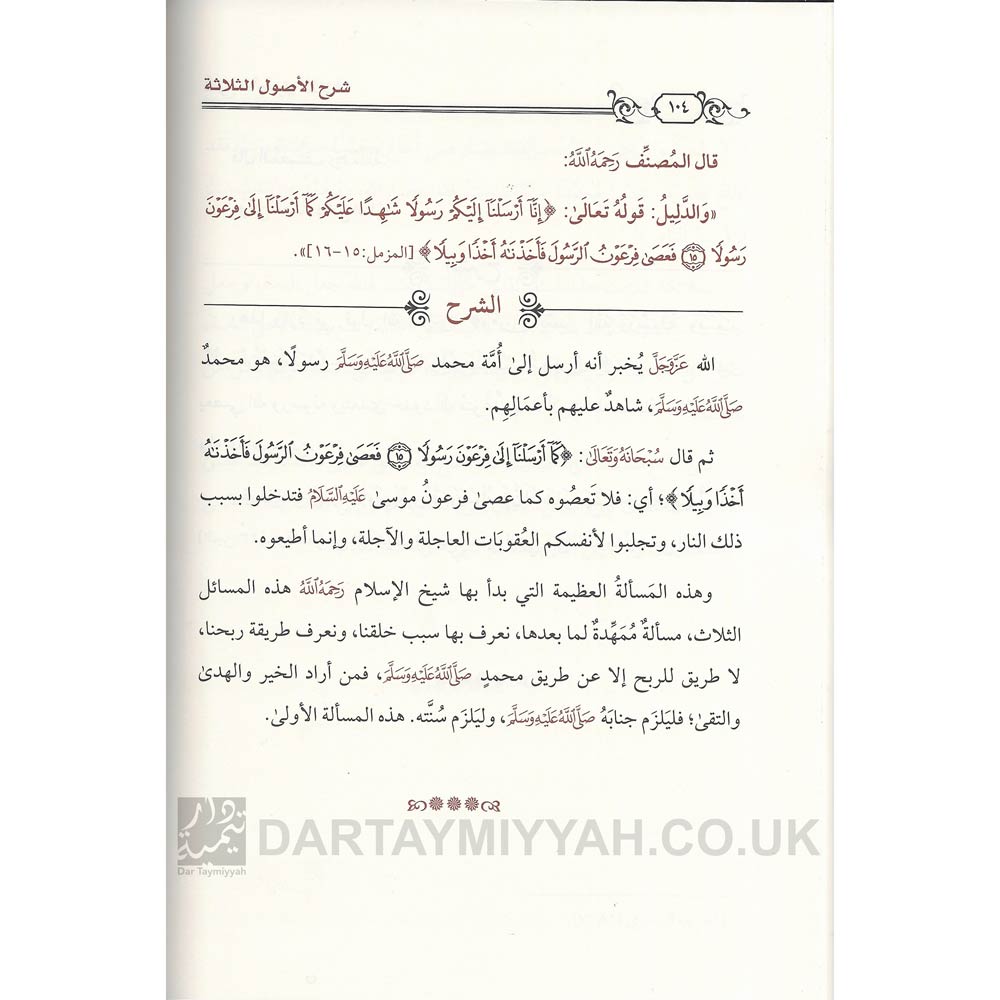 شرح الأصول الثلاثة
١٠٤
قال المُصنِّف رَحِمَهُ اللَّهُ:
«وَالدَّلِيلُ: قَولُهُ تَعَالَىٰ: ﴿إِنَّآ أَرْسَلْنَآ إِلَيْكُمْ رَسُولًا شَٰهِدًا عَلَيْكُمْ كَمَآ أَرْسَلْنَآ إِلَىٰ فِرْعَوْنَ
رَسُولًا ۝١٥ فَعَصَىٰ فِرْعَوْنُ ٱلرَّسُولَ فَأَخَذْنَٰهُ أَخْذًا وَبِيلًا﴾ [المزمل: ١٥-١٦]».
الشرح
الله عَزَّوَجَلَّ يُخبر أنه أرسل إلىٰ أُمَّة محمد صَلَّى اللَّهُ عَلَيْهِ وَسَلَّمَ رسولًا، هو محمدٌ
صَلَّى اللَّهُ عَلَيْهِ وَسَلَّمَ، شاهدٌ عليهم بأعمَالِهِم.
ثم قال سُبْحَانَهُ وَتَعَالَىٰ: ﴿كَمَآ أَرْسَلْنَآ إِلَىٰ فِرْعَوْنَ رَسُولًا ۝١٥ فَعَصَىٰ فِرْعَوْنُ ٱلرَّسُولَ فَأَخَذْنَٰهُ
أَخْذًا وَبِيلًا﴾؛ أي: فلا تَعصُوه كما عصىٰ فرعونُ موسىٰ عَلَيْهِ السَّلَامُ فتدخلوا بسبب
ذلك النار، وتجلبوا لأنفسكم العُقوبَات العاجلة والآجلة، وإنما أطيعوه.
وهذه المَسألةُ العظيمة التي بدأ بها شيخ الإسلام رَحِمَهُ اللَّهُ هذه المسائل
الثلاث، مسألةٌ مُمَهِّدةٌ لما بعدها، نعرف بها سبب خلقنا، ونعرف طريقة ربحنا،
لا طريق للربح إلا عن طريق محمدٍ صَلَّى اللَّهُ عَلَيْهِ وَسَلَّمَ، فمن أراد الخير والهدىٰ
والتقىٰ؛ فليَلزَم جنابَهُ صَلَّى اللَّهُ عَلَيْهِ وَسَلَّمَ، وليَلزَم سُنَّته. هذه المسألة الأولىٰ.
دار تيمية
Dar Taymiyyah
DARTAYMIYYAH.CO.UK